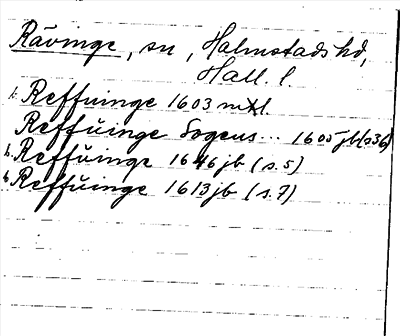 Rävinge, sn, Halmstads hd,
Hall. l.
1. Reffuinge 1603 mtl.
Reffŭinge Sogens... 1605 jb (s36)
b. Reffŭinge 1646 jb (s.5)
b. Reffŭinge 1613 jb (s.7)